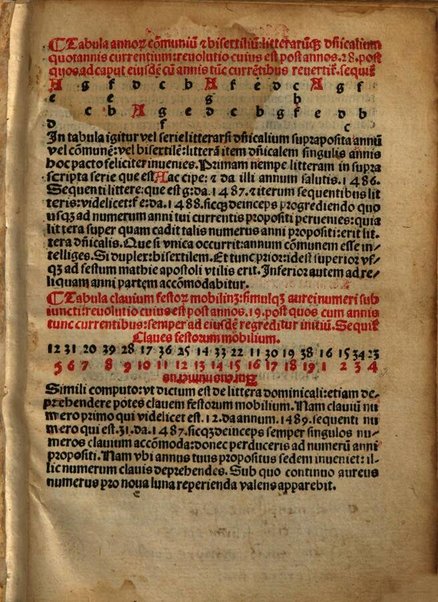 Tabula annoꝝ cōmuniū ⁊ bisextiliū: litterarūqꝫ dñicalium
quotannis currentium: reuolutio cuius est post annos .28. post
quos ad caput eiusdē cū annis tūc currētibus reuertiť. sequiť
A g f d c b A f e d c A g f
e g b
c b A g e d c b g f e d b
d f c
In tabula igitur vel serie litterarꝫ dñicalium supraposita annū
vel cōmunē: vel bisextilē: litterā item dñicalem singulis annis
hoc pacto feliciter inuenies. Primam nempe litteram in supra
scripta serie que est A accipe: ⁊ da illi annum salutis .1486.
Sequenti littere: que est g: da .1487. ⁊ iterum sequentibus lit
teris: videlicet f e: da .1488. sicqꝫ deinceps progrediendo quo
usqꝫ ad numerum anni tui currentis propositi peruenies: quia
littera super quam cadit talis numerus anni propositi: erit lit
tera dñicalis. Que si vnica occurrit: annum cōmunem esse in⸗
telliges. Si duplex: bisextilem. Et tunc prior: idest superior vs⸗
qꝫ ad festum mathie apostoli vtilis erit. Inferior autem ad re⸗
liquam anni partem accōmodabitur.
Tabula clauium festoꝝ mobiliuꝫ: simulqꝫ aurei numeri sub
iuncti: reuolutio cuius est post annos .19. post quos cum annis
tunc currentibus: semper ad eiusdeꝫ regreditur initiū. Sequiť
Claues festorum mobilium.
12 31 20 39 28 17 36 25 14 33 22 11 30 19 38 16 15 34 23
5 6 7 8 9 10 11 12 13 14 15 16 17 18 19 1 2 3 4
Aureus numerus
Simili computo: vt dictum est de littera dominicali: etiam de⸗
prehendere potes clauem festorum mobilium. Nam clauiū nu
mero primo qui videlicet est .12. da annum .1489. sequenti nu
mero qui est .31. da .1487. sicqꝫ deinceps semper singulos nu⸗
meros clauium accōmoda: donec perduceris ad numerū annē
propositi. Nam vbi annus tuus propositus sedem inueniet: il⸗
lic numerum clauis deprehendes. Sub quo continuo aureus
numerus pro noua luna reperienda valens apparebit.